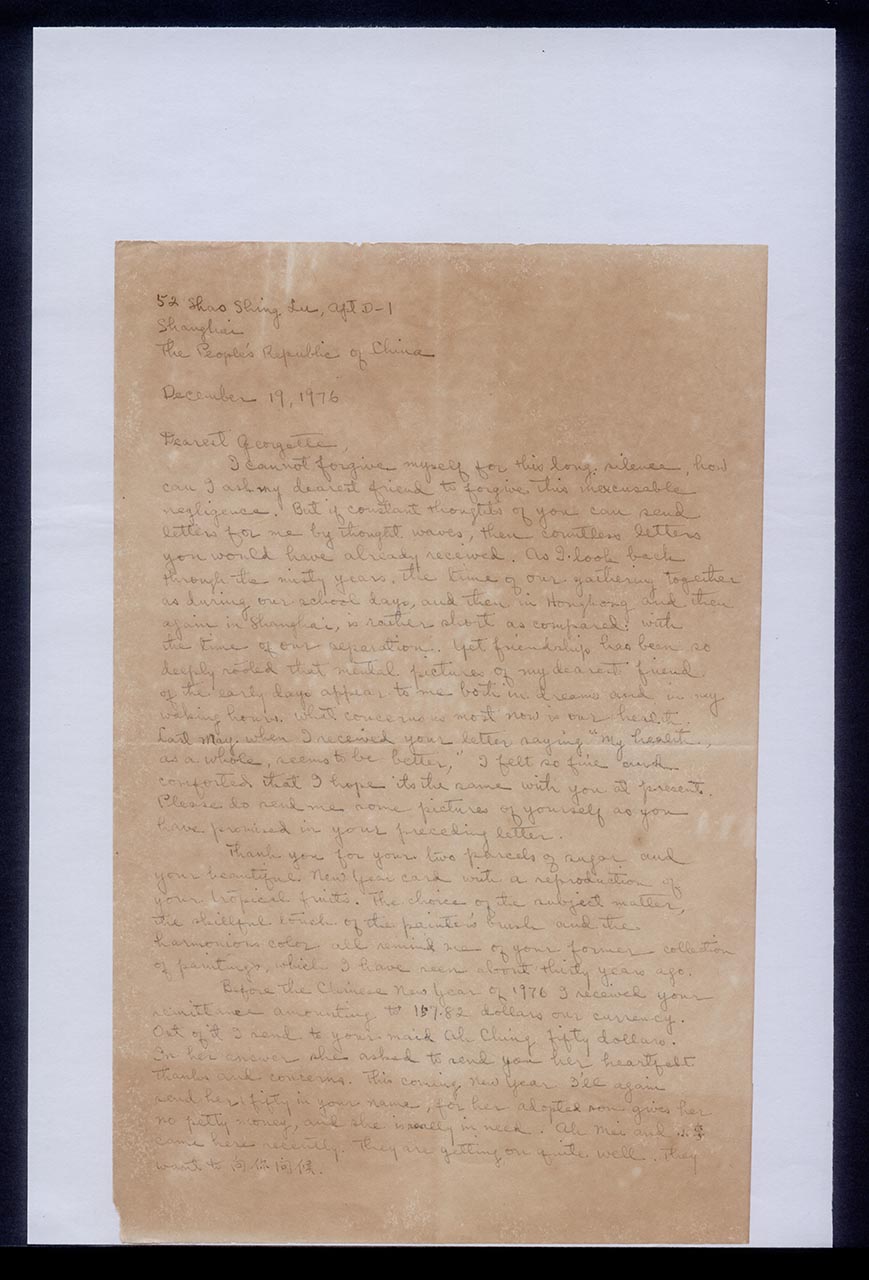 52 Shao Shing Lu, Apt D-1
Shanghai
The People's Republic of China
December 19, 1976
Dearest Georgette,
I cannot forgive myself for this long silence, how
can I ask my dearest friend to forgive this inexcusable
negligence. But if constant thoughts of you can send
letters for me by thought waves, then countless letters
you would have already received. As I look back
through the misty years, the time of our gathering together
as during our school days, and then in Hongkong and then
again in Shanghai, is rather short as compared with
the time of our separation. Yet friendship has been so
deeply rooted that mental pictures of my dearest friend
of the early days appear to me both in dreams and in my
waking hours. What concerns us most now is our health.
Last May, when I received your letter saying "My health,
as a whole, seems to be better," I felt so fine and
comforted that I hope its the same with you at present.
Please do send me some pictures of yourself as you
have promised in your preceding letter.
Thank you for your two parcels of sugar and
your beautiful New Year card with a reproduction of
your tropical fruits. The choice of the subject matter,
the skillful touch of the painter's brush and the
harmonious color all remind me of your former collection
of paintings, which I have seen about thirty years ago.
Before the Chinese New Year of 1976 I received your
remittance amounting to 157.82 dollars our currency.
Out of it I send to your maid Ah Ching fifty dollars.
In her answer she asked to send you her heartfelt
thanks and concerns. This coming New Year I'll again
send her fifty in your name, for her adopted son gives her
no petty money, and she is really in need. Ah Mei and
came here recently. They are getting on quite well. They
want to 向你问候.